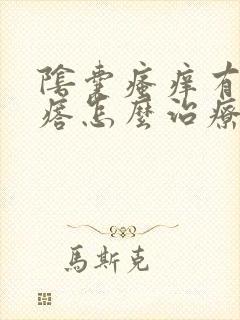 陰囊瘙痒有
瘩怎麼治療
馬斯克